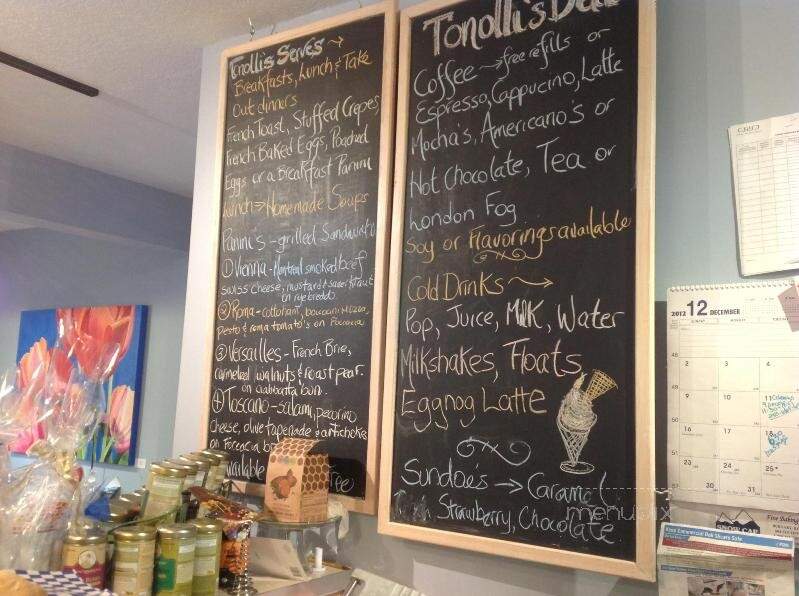 Tonolli's Serves
Breakfasts, Lunch & Take
Out dinners
French Toast, Stuffed Crepes,
French Baked Eggs, Poached
Eggs or a Breakfast Panini
Lunch → Homemade Soups
Panini's - grilled Sandwich
① Vienna - Montreal smoked beef
swiss cheese, mustard & sauerkraut
on rye bread
② Roma - Cotto ham, bocconcini
pesto & roma tomato's on
③ Versailles - French Brie,
carmelized walnuts & roast pear
on ciabatta bun.
④ Toscano - salami, pecorino
cheese, olive tapenade & artichokes
on
available Free
Tonolli's Deli
Coffee → free refills or
Espresso, Cappucino, Latte
Mocha's, Americano's or
Hot Chocolate, Tea or
London Fog
Soy or Flavorings available
Cold Drinks
Pop, Juice, Milk, Water
Milkshakes, Floats
Eggnog Latte
Sundae's → Caramel
Strawberry, Chocolate
menupix
2012 12 DECEMBER
2
3
4
9
10
11
16
17
18
23
24
25
30
31
SNOW CAP
Fine Baking